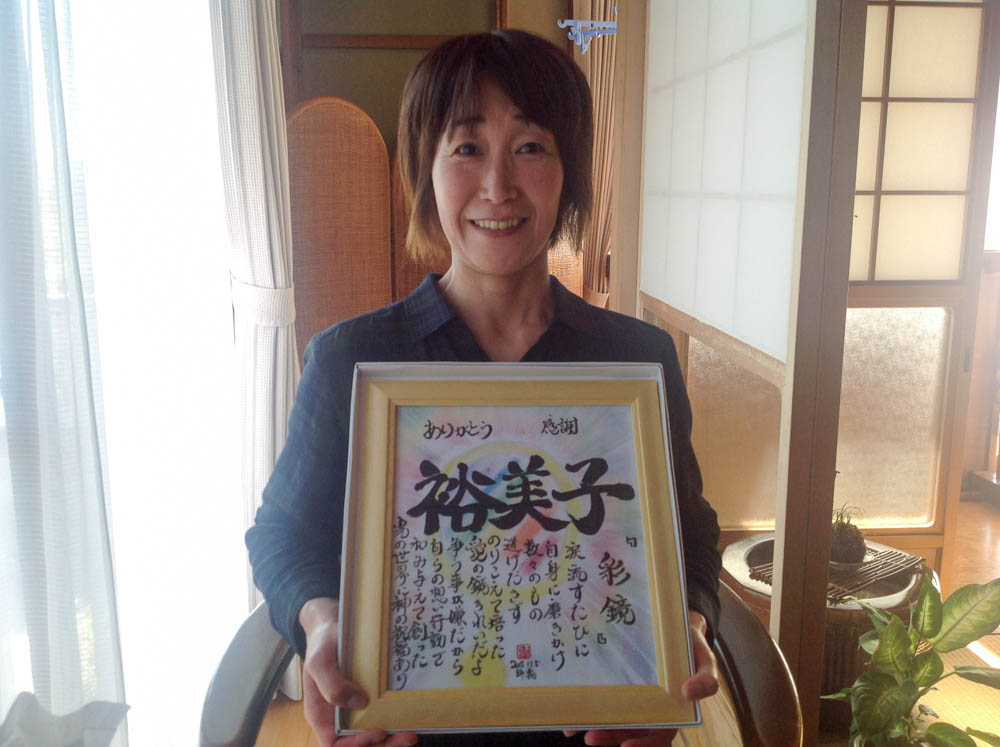 ありがとう 感謝
裕美子
『彩鏡』
涙流すたびに
自身に磨きかけ
数々のもの
逃げださず
のりこえて培った
の鏡きれいだよ
争う事が嫌だから
自らの想い行動で
和み与えて創った
光の世界に神の祝福あり